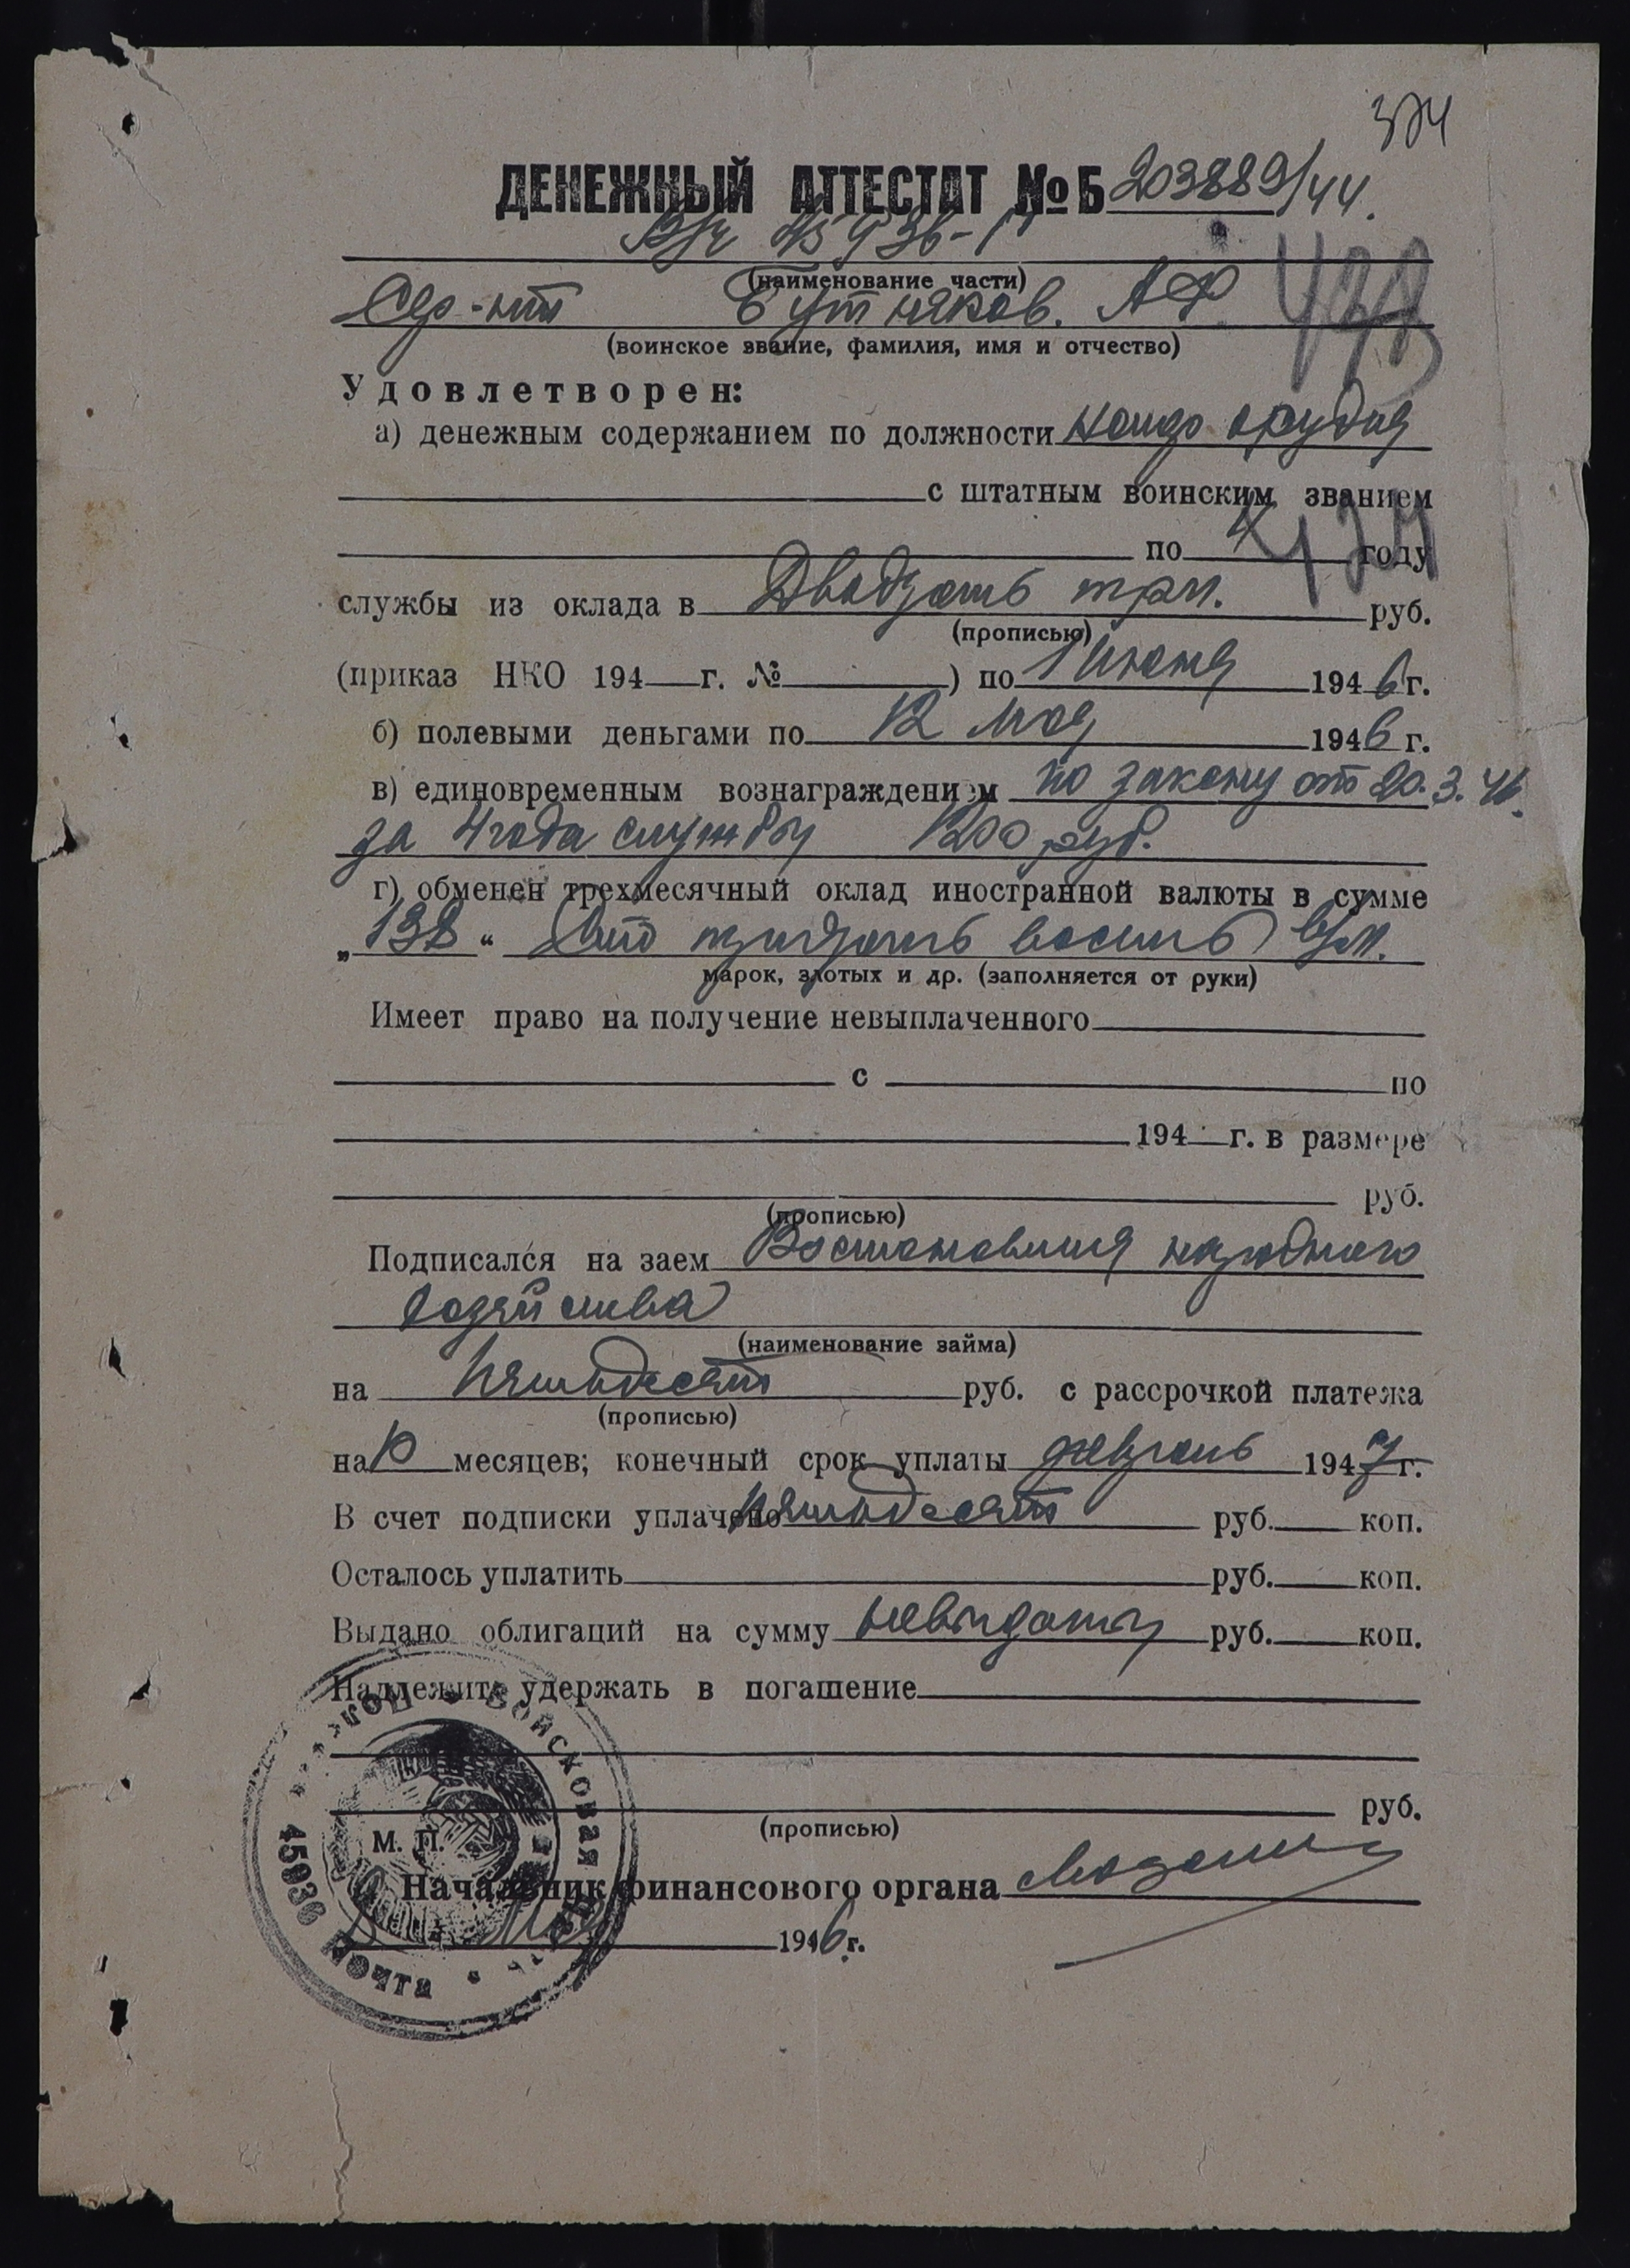 374
ДЕНЕЖНЫЙ АТТЕСТАТ № Б 203889/44.
В/ч 45936-"Г"
(наименование части)
Сер-нт Бутняков. А.Ф.
(воинское звание, фамилия, имя и отчество)
Удовлетворен:
а) денежным содержанием по должности комдр орудия
с штатным воинским званием
по 4 году
службы из оклада в Двадцать три. руб.
(прописью)
(приказ НКО 194 г. № ) по 1 июня 1946 г.
б) полевыми деньгами по 12 мая 1946 г.
в) единовременным вознаграждением по закону от 20.3.46.
за 4 года службы 1200 руб.
г) обменен трехмесячный оклад иностранной валюты в сумме
„138“ Сто тридцать восемь
марок, злотых и др. (заполняется от руки)
Имеет право на получение невыплаченного
с по
194 г. в размере
руб.
(прописью)
Подписался на заем Востоновления народного
хозяйства
(наименование займа)
на Пятьдесят руб. с рассрочкой платежа
(прописью)
на 10 месяцев; конечный срок уплаты февраль 1947 г.
В счет подписки уплачено пятьдесят руб. коп.
Осталось уплатить руб. коп.
Выдано облигаций на сумму невыданы руб. коп.
Надлежит удержать в погашение
руб.
(прописью)
М. П.
Начальник финансового органа
1946 г.
Войсковая часть Полевая Почта 45936